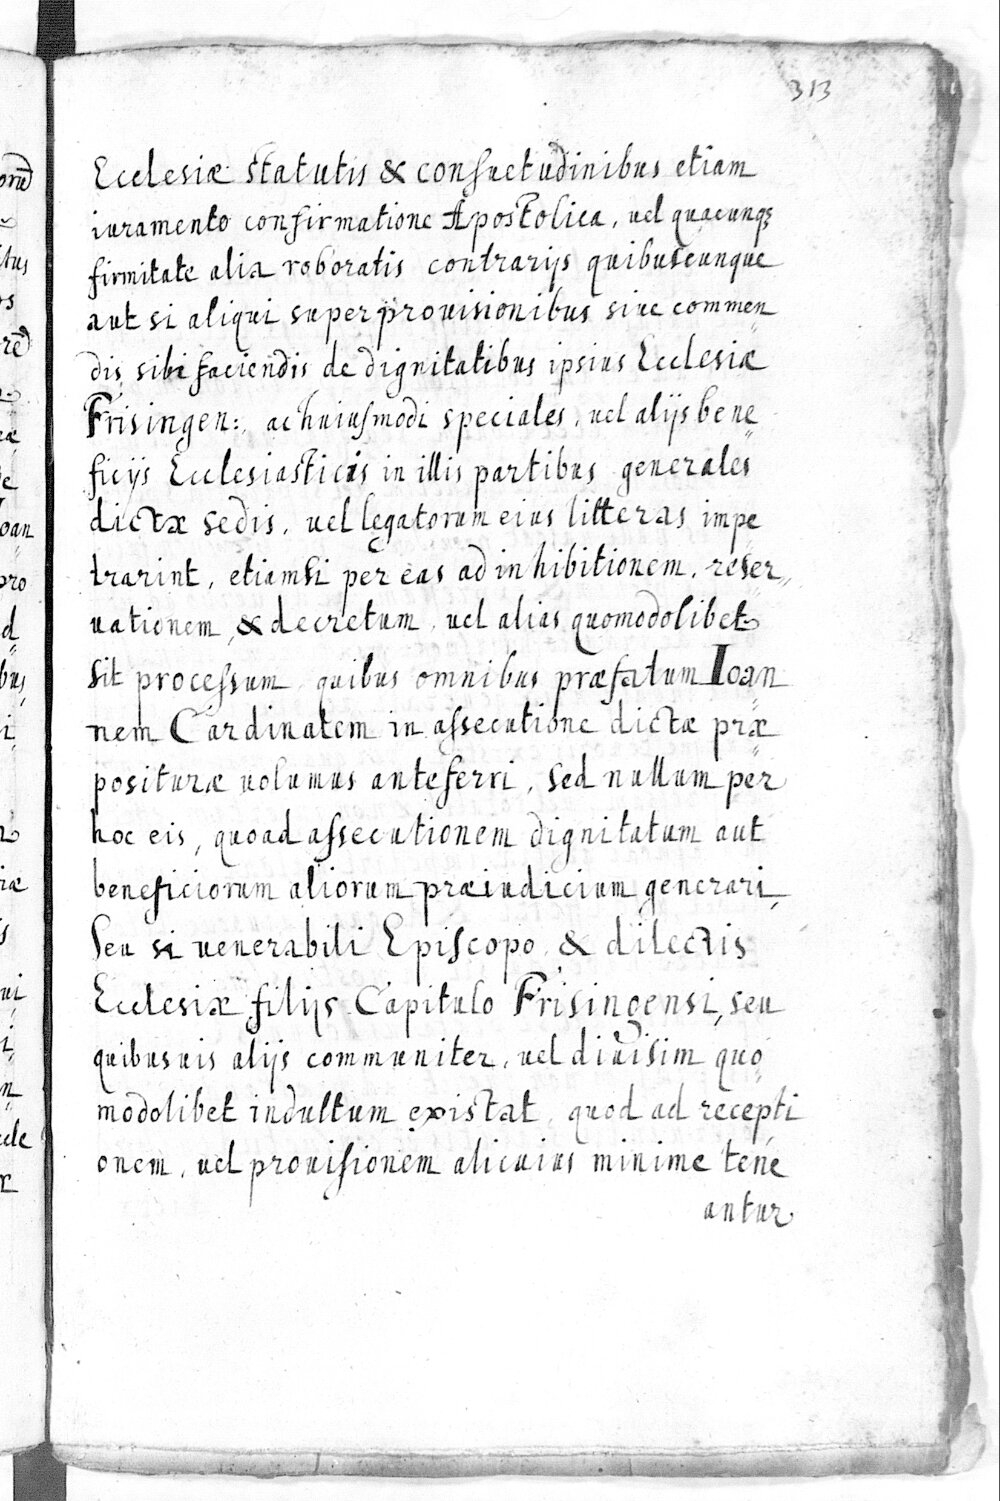 313
Ecclesiæ statutis & consuetudinibus etiam
iuramento confirmatione Apostolica, uel quacunq3
firmitate alia roboratis contrarijs quibuscunque
aut si aliqui super prouisionibus siue commen
dis sibi faciendis de dignitatibus ipsius Ecclesiæ
Frisingen: ac huiusmodi speciales, uel alijs bene
ficijs Ecclesiasticis in illis partibus generales
dictæ sedis, uel legatorum eius litteras impe
trarint, etiamsi per eas ad inhibitionem, reser
uationem, & decretum, uel alias quomodolibet
sit processum, quibus omnibus præfatum Ioan
nem Cardinalem in assecutione dictæ præ
posituræ uolumus anteferri, sed nullum per
hoc eis, quoad assecutionem dignitatum aut
beneficiorum aliorum præiudicium generari,
Seu si uenerabili Episcopo, & dilectis
Ecclesiæ filijs Capitulo Frisingensi, seu
quibusuis alijs communiter, uel diuisim quo
modolibet indultum existat, quod ad recepti
onem, uel prouisionem alicuius minime tene
antur